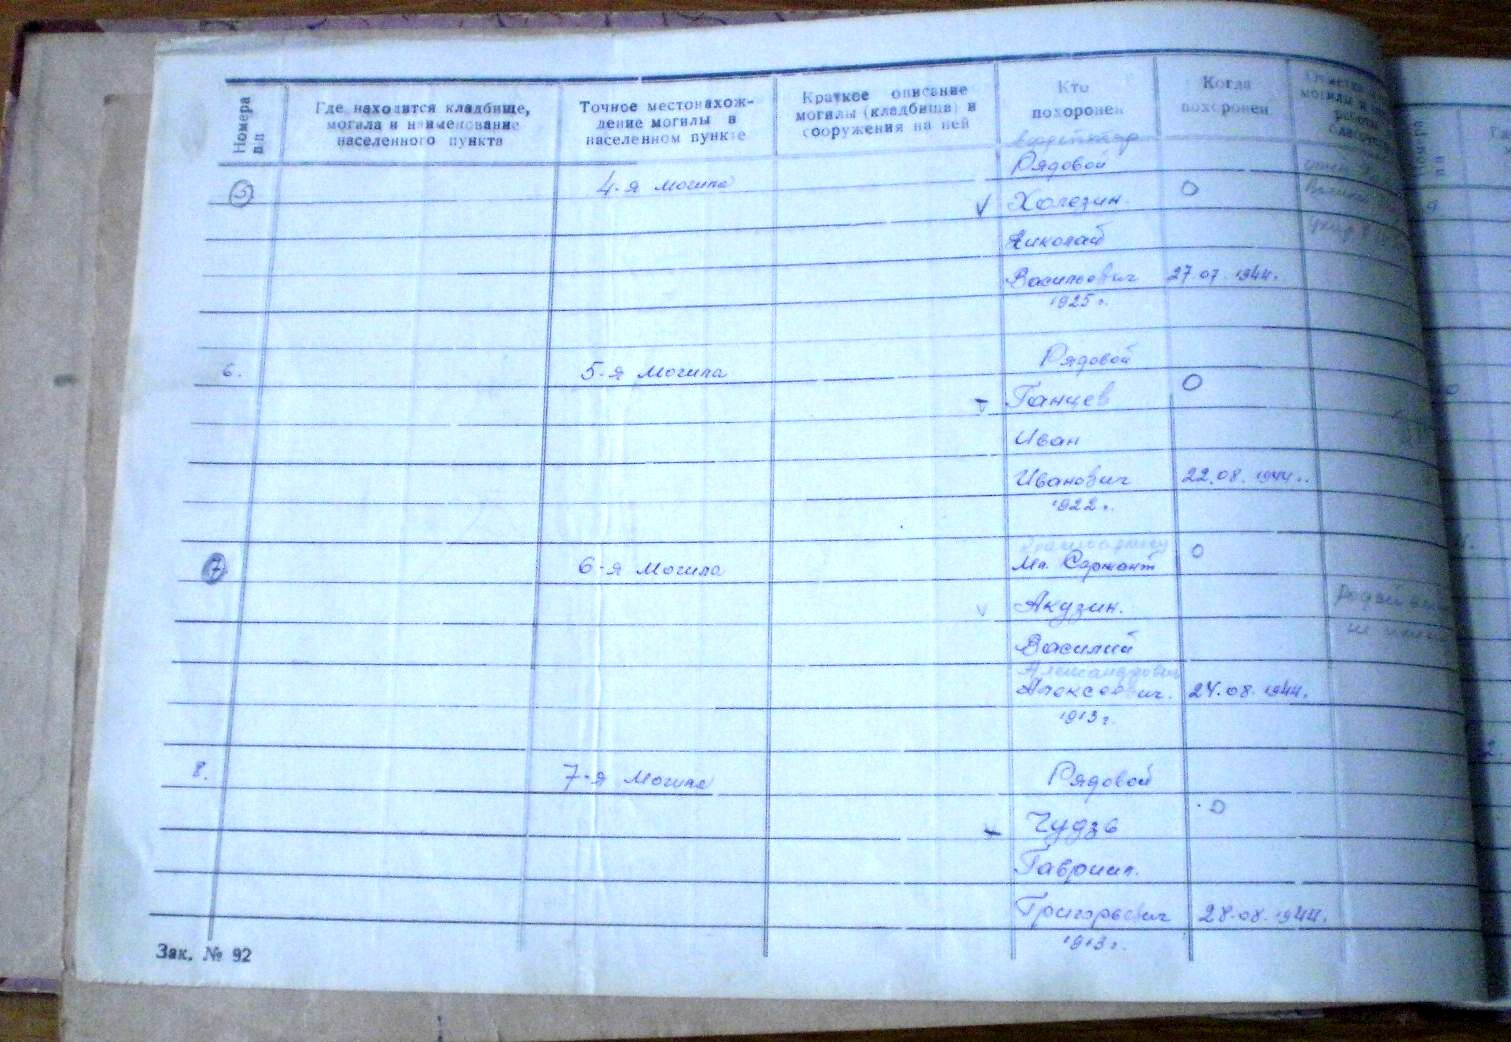 Номера п.п
Где находится кладбище,
могила и наименование
населенного пункта
Точное местонахож-
дение могилы в
населенном пункте
Краткое описание
могилы (кладбища) и
сооружения на ней
Кто
похоронен
Когда
похоронен
5
4-я могила
Рядовой
Холезин
Николай
Васильевич 27.07.1944.
1925 г.
6.
5-я могила
Рядовой
Ганцев
Иван
Иванович 22.08.1944.
1922 г.
7
6-я могила
Мл. Сержант
Акузин.
Василий
Александрович
Алексеевич. 24.08.1944.
1913 г.
8.
7-я могила
Рядовой
Гавриил.
Григорьевич 28.08.1944.
1913 г.
Зак. № 92